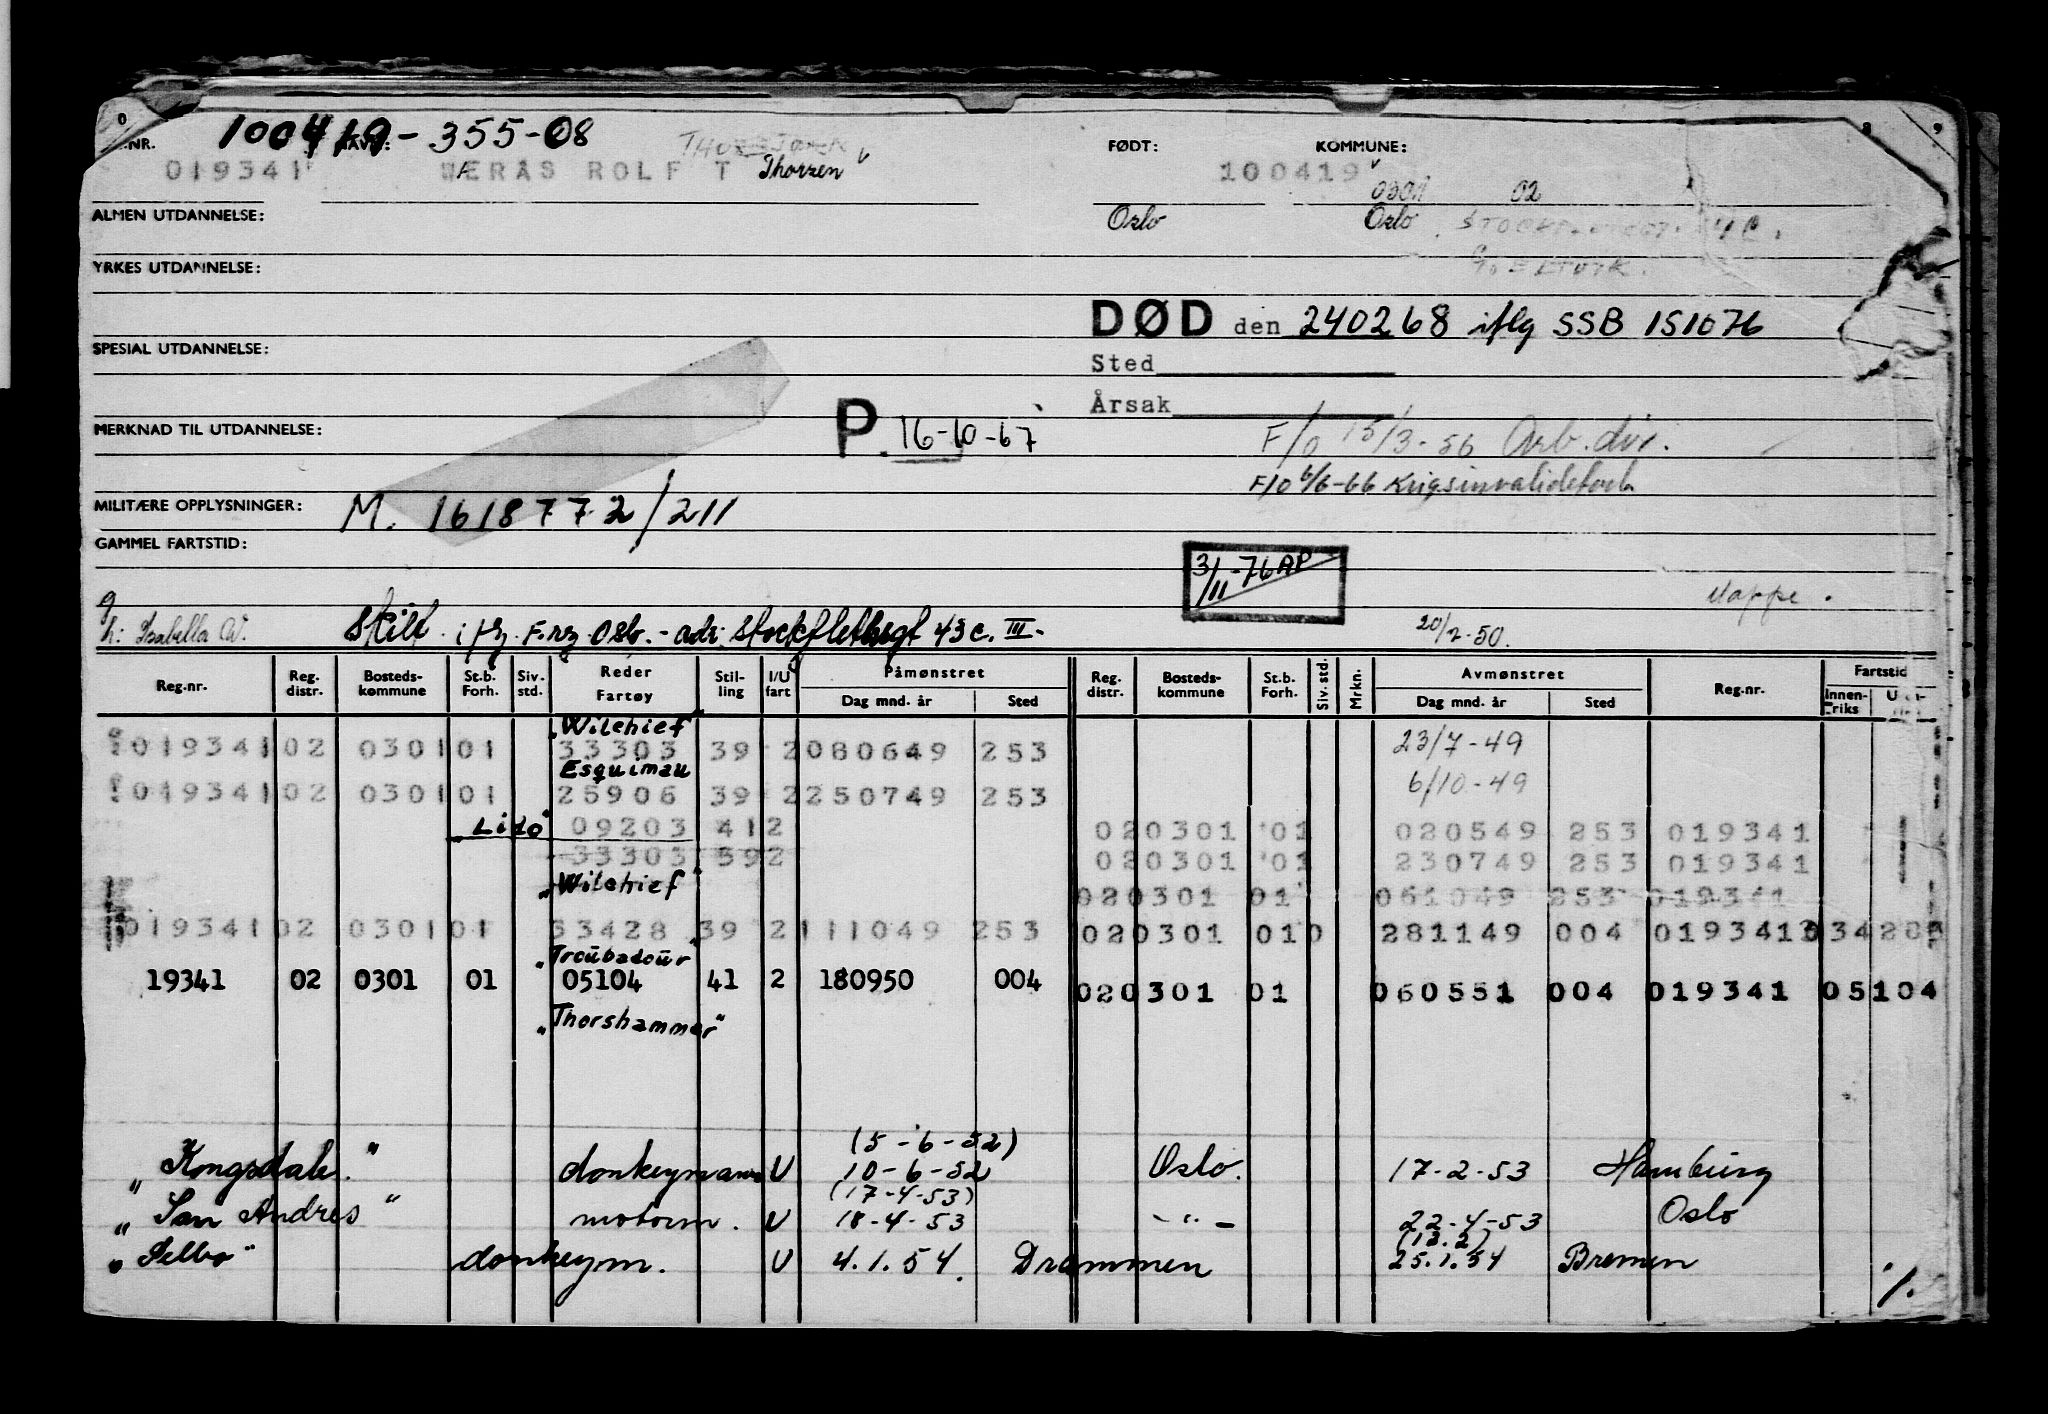 100419-355-08
..NR. NAVN: FØDT: KOMMUNE:
019341 WERÅS ROLF T Thorzen 100419
0301 02
ALMEN UTDANNELSE: Oslo Oslo
YRKES UTDANNELSE:
DØD den 240268 iflg SSB 151076
SPESIAL UTDANNELSE: Sted
Årsak
MERKNAD TIL UTDANNELSE: P. 16-10-67 F/o 15/3-56 Arb.dir.
F/o 6/6-66 Krigsinvalideforb
MILITÆRE OPPLYSNINGER: M. 1618772/211
GAMMEL FARTSTID:
3/11-76 AP
Mappe.
h: Isabella W. Skilt. iflg. F.rg Oslo.- adr: Stockflethsgt 43c. III. 20/2-50.
Reg.nr. Reg. distr. Bosteds- kommune St.b. Forh. Siv. std. Reder Fartøy Stil- ling I/U fart Påmønstret Dag mnd. år Sted Reg. distr. Bosteds- kommune St.b. Forh. Siv. std. Mrkn. Avmønstret Dag mnd. år Sted Reg.nr. Fartstid Innen- riks
"Wilchief"
019341 02 0301 01 33303 39 2 080649 253 23/7-49
Esquimau
019341 02 0301 01 25906 39 2 250749 253 6/10-49
Lido" 09203 41 2 02 0301 01 020549 253 019341
33303 39 2 02 0301 01 230749 253 019341
"Wilchief" 02 0301 01 061049 253 019341
019341 02 0301 01 33428 39 2 111049 253 02 0301 01 0 281149 004 019341
"Troubadour"
19341 02 0301 01 05104 41 2 180950 004 02 0301 01 060551 004 019341 05104
"Thorshammer"
(5-6-52)
"Kongsdale." donkeymann U 10-6-52 Oslo. 17-2-53 Hamburg
(17-4-53)
"San Andres" motorm. U 18-4-53 -"- 22-4-53 Oslo
(13.2)
"Selbo" donkeym. U 4.1.54. Drammen 25.1.54 Bremen